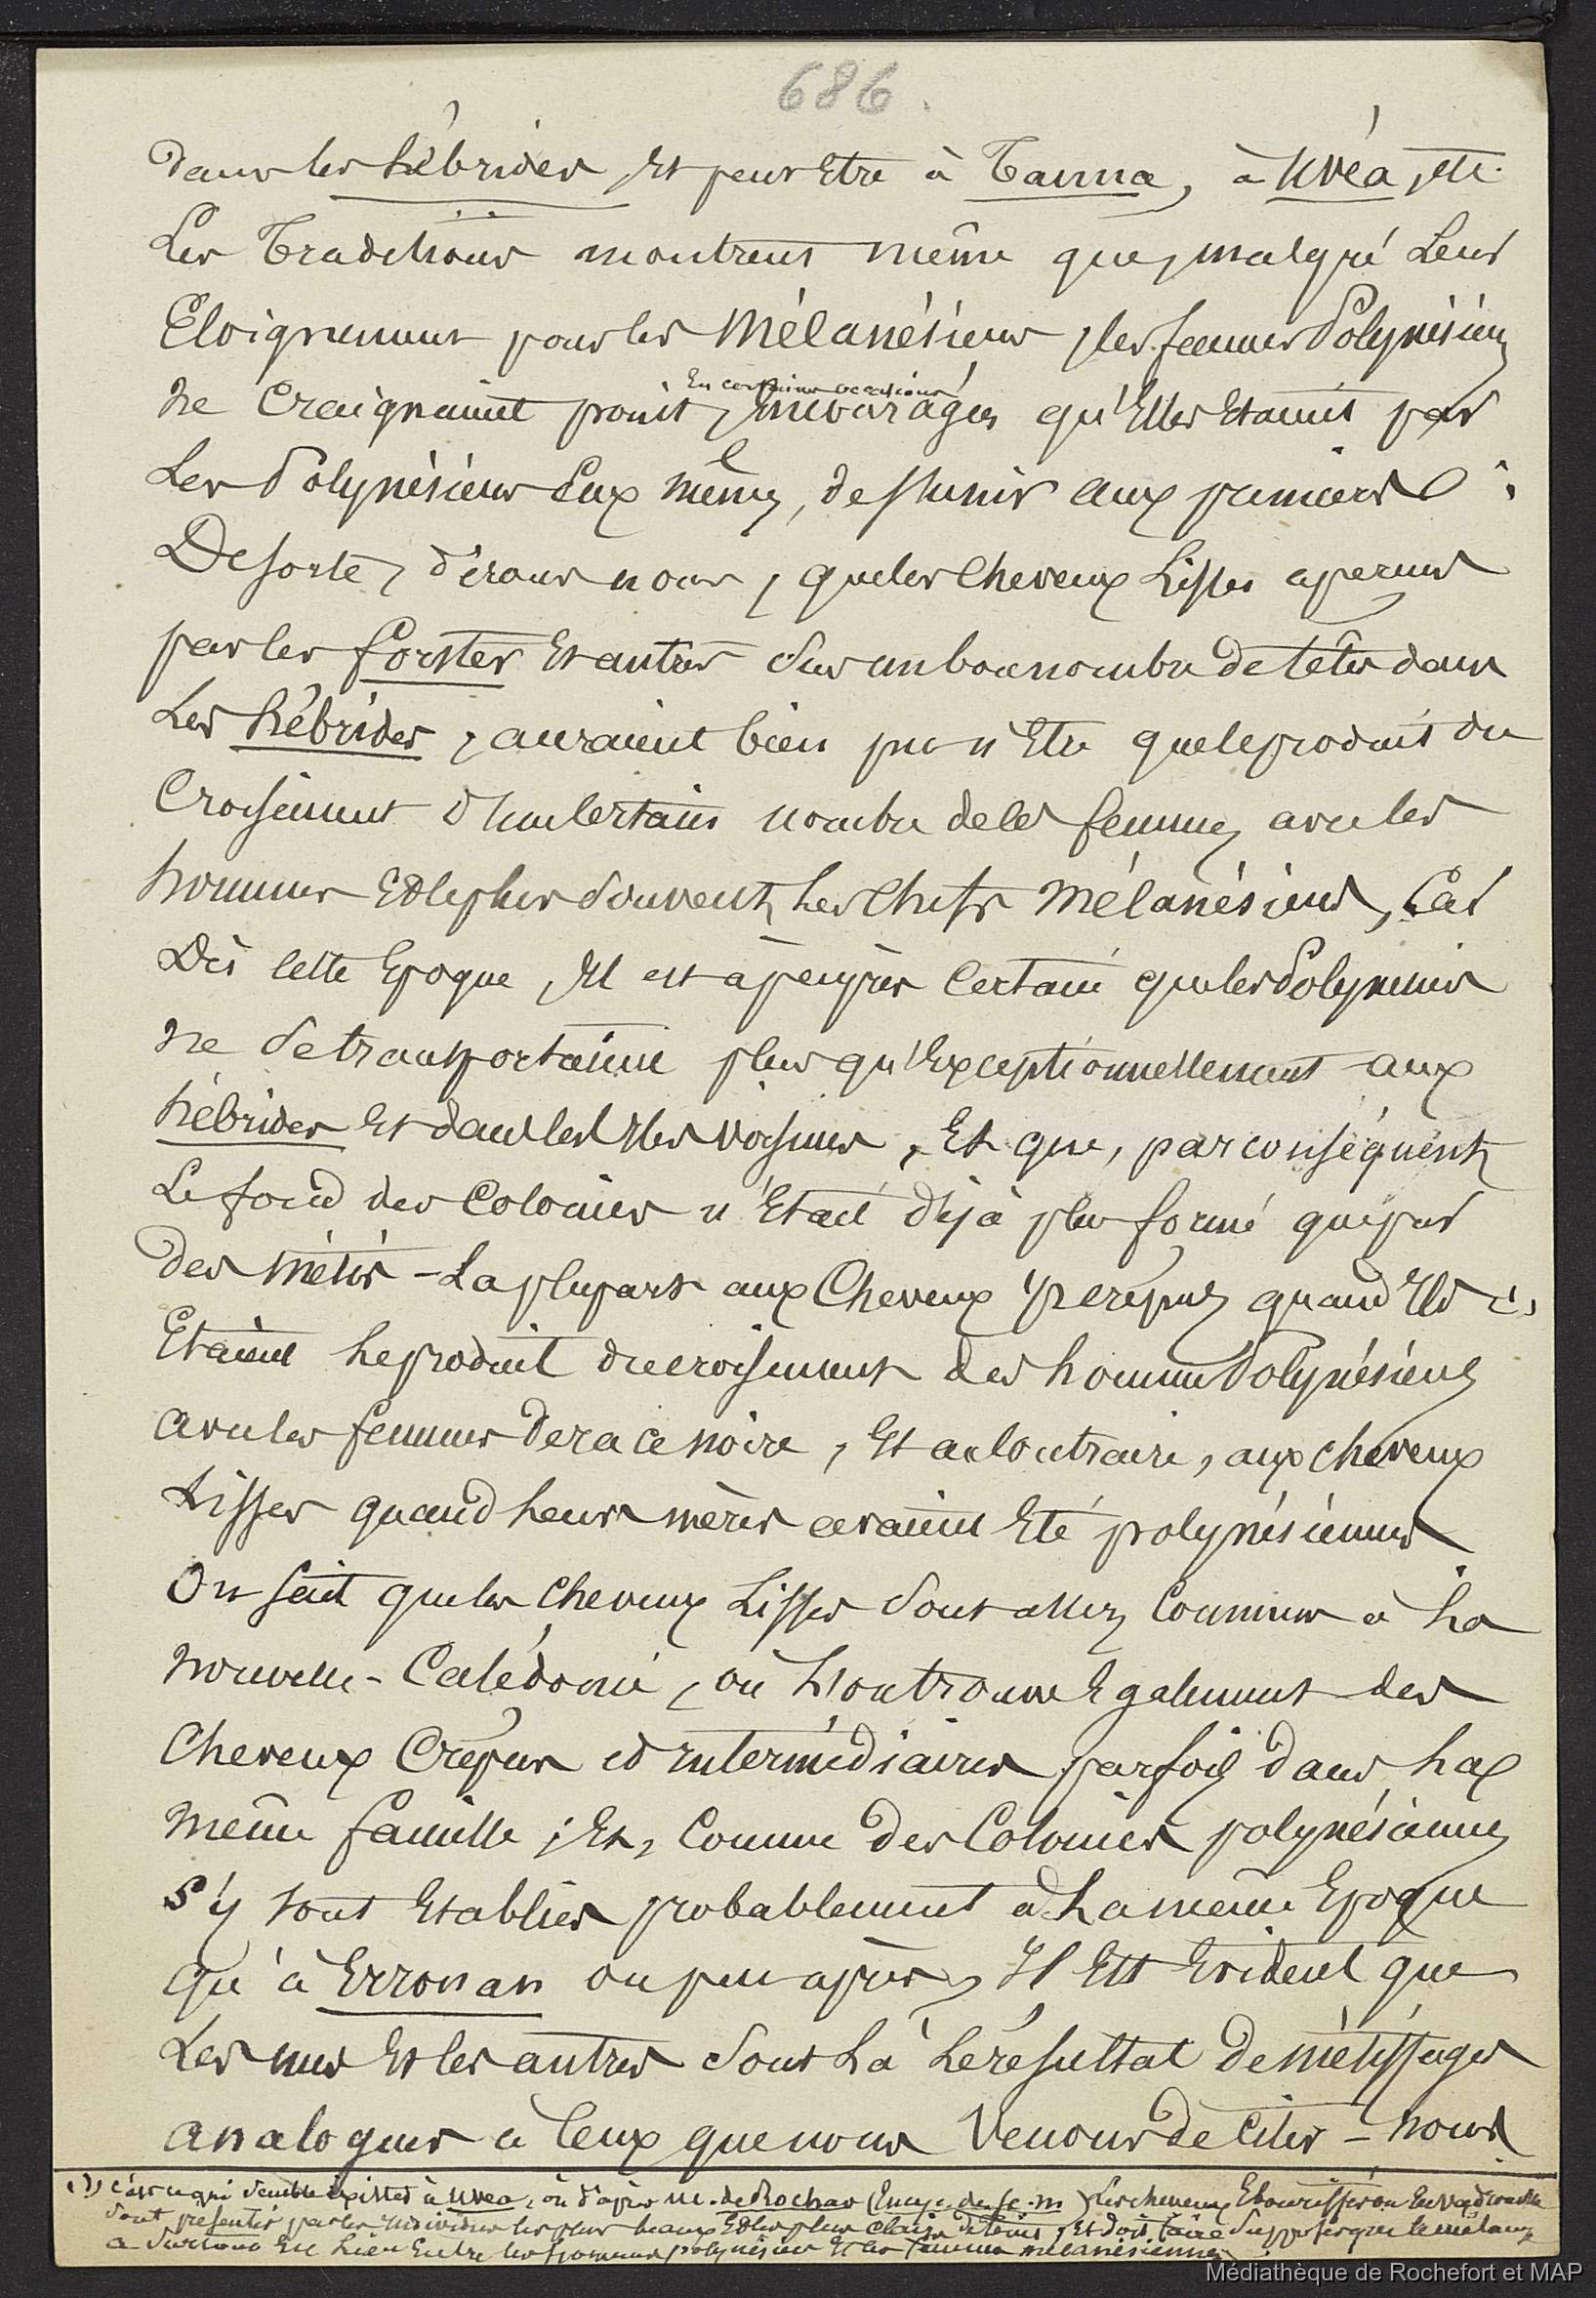 686.
dans les hébrides, Et peut Etre à Tanna, à Uvéa, etc.
Les Traditions montrent même que, malgré Leur
Eloignement pour les Mélanésiens, les femmes Polynésiennes
ne Craignaient point, En certaines occasions
Encouragées qu'Elles Etaient par
Les Polynésiens Eux mêmes, de s'unir aux premiers
De sorte, dirons nous, que les Cheveux Lisses aperçus
par les forster Et autres Sur un bon nombre de têtes dans
Les hébrides, auraient bien pu n'Etre que le produit du
Croisement d'un certain nombre de ces femmes avec les
hommes Et le plus Souvent, Les Chefs Mélanésiens, Car
Dès cette Epoque, Il est à peu près Certain que les Polynésiens
ne Se transportaient plus qu'Exceptionnellement aux
hébrides Et dans les Iles voisines, Et que, par conséquent
Le fond des Colonies n'Etait déjà plus formé que par
des métis - La plupart aux Cheveux crépus quand Ils
Etaient Le produit du croisement des hommes Polynésiens
avec les femmes de race noire, Et au Contraire, aux cheveux
Lisses quand Leurs mères avaient Eté polynésiennes
On Sait que les Cheveux Lisses Sont assez Communs à La
Nouvelle-Calédonie, où L'on trouve Egalement des
Cheveux Crépus et Intermédiaires parfois dans La
même famille; Et, Comme des Colonies polynésiennes
S'y sont Etablies probablement à La même Epoque
qu'à Erronan ou peu après, Il Est Evident que
Les uns Et les autres Sont Là Le résultat de métissages
analogues à Ceux que nous Venons de Citer - Nous
(1) c'est ce qui Semble Exister à Uvea, où d'après M. de Rochas (Encyc. des sc. m) Les cheveux Ebouriffés ou En
Sont présentés par les Individus les plus beaux Et les plus clairs de teint, Et doit faire Supposer que le mélange
a Surtout Eu Lieu Entre les hommes polynésiens Et les femmes mélanésiennes.
Médiathèque de Rochefort et MAP